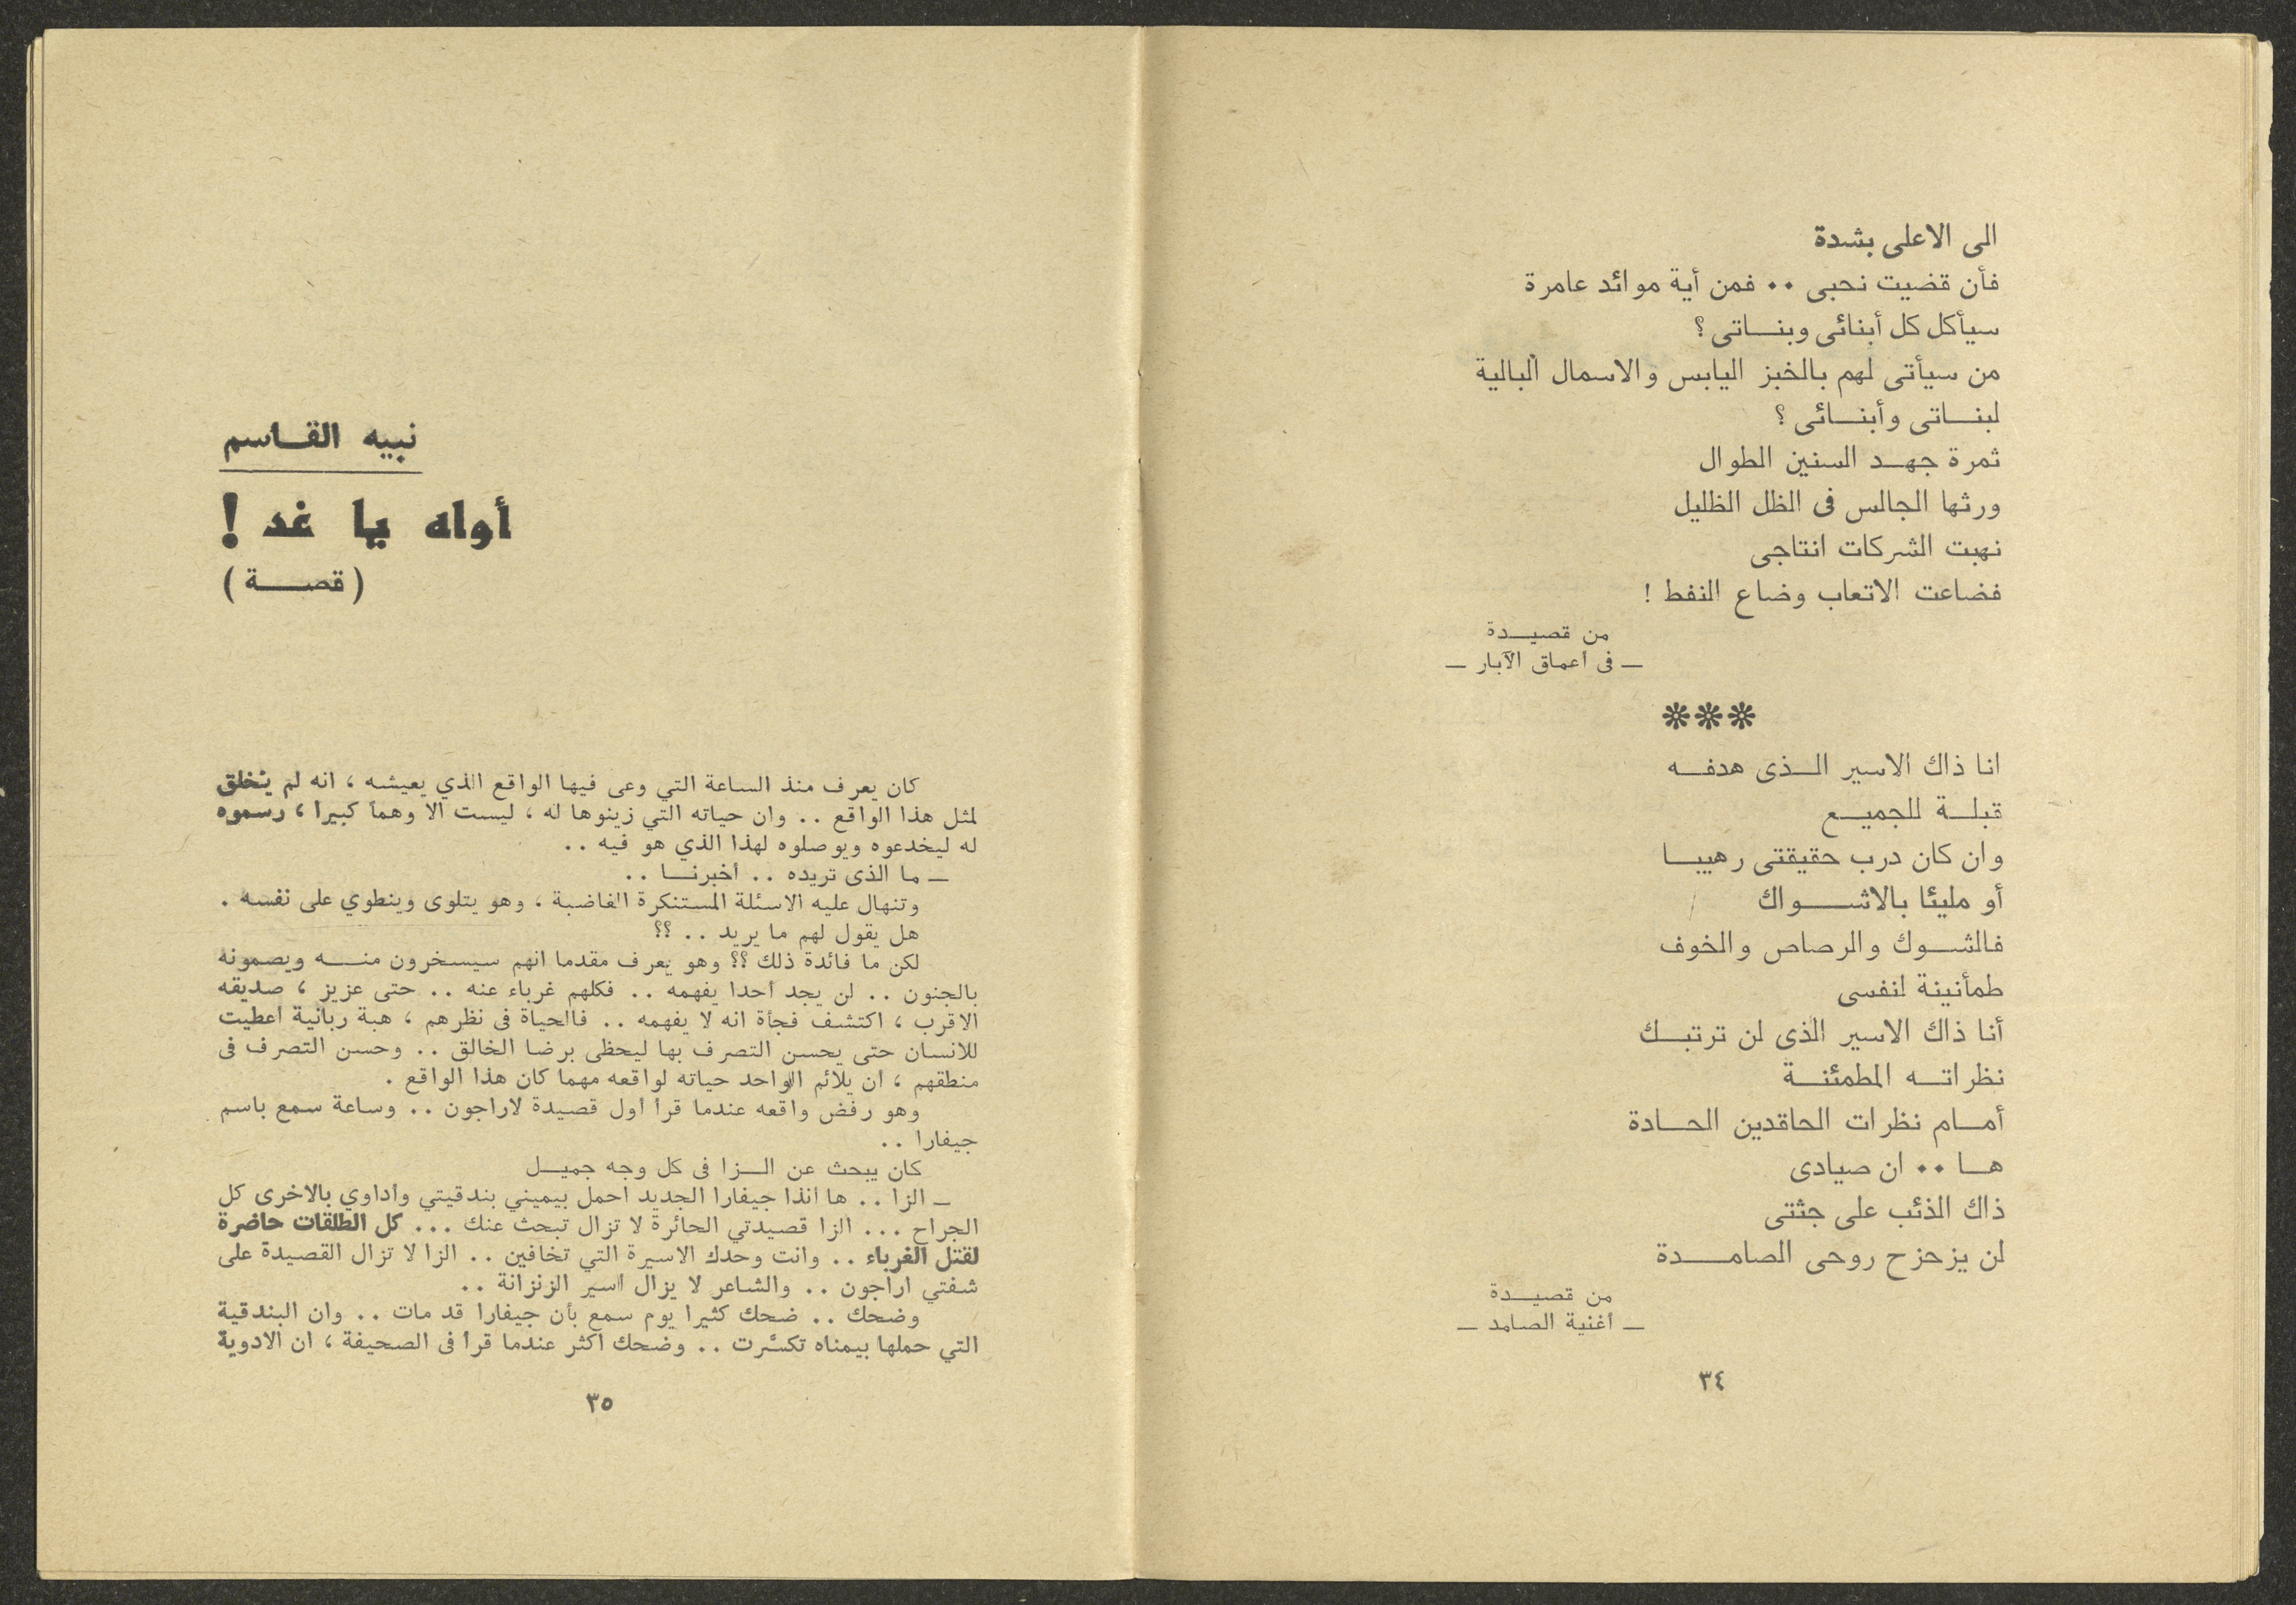 الى الاعلى بشدة
فأن قضيت نحبى ٠٠ فمن أية موائد عامرة
سيأكل كل أبنائى وبنـاتى ؟
من سيأتى لهم بالخبز اليابس والاسمال البالية
لبنـاتى وأبنـائى ؟
ثمرة جهـد السنين الطوال
ورثها الجالس فى الظل الظليل
نهبت الشركات انتاجى
فضاعت الاتعاب وضاع النفط !
من قصيـدة
ـ فى أعماق الآبار ـ
***
انا ذاك الاسير الـذى هدفـه
قبلـة للجميـع
وان كان درب حقيقتى رهيبـا
أو مليئا بالاشـواك
فالشـوك والرصاص والخوف
طمأنينة لنفسى
أنا ذاك الاسير الذى لن ترتبـك
نظراتـه المطمئنـة
أمـام نظرات الحاقدين الحـادة
هـا ٠٠ ان صيادى
ذاك الذئب على جثتى
لن يزحزح روحى الصامـدة
من قصيـدة
ـ أغنية الصامد ـ
٣٤
نبيه القـاسم
أواه يا غد !
( قصـة )
كان يعرف منذ الساعة التي وعى فيها الواقع الذي يعيشه ، انه لم يُخلق
لمثل هذا الواقع .. وان حياته التي زينوها له ، ليست الا وهماً كبيرا ، رسموه
له ليخدعوه ويوصلوه لهذا الذي هو فيه ..
ـ ما الذى تريده .. أخبرنـا ..
وتنهال عليه الاسئلة المستنكرة الغاضبة ، وهو يتلوى وينطوي على نفسه .
هل يقول لهم ما يريد .. ؟؟
لكن ما فائدة ذلك ؟؟ وهو يعرف مقدما انهم سيسخرون منـه ويصمونه
بالجنون .. لن يجد أحدا يفهمه .. فكلهم غرباء عنه .. حتى عزيز ، صديقه
الاقرب ، اكتشف فجأة انه لا يفهمه .. فالحياة فى نظرهم ، هبة ربانية اعطيت
للانسان حتى يحسن التصرف بها ليحظى برضا الخالق .. وحسن التصرف فى
منطقهم ، ان يلائم الواحد حياته لواقعه مهما كان هذا الواقع .
وهو رفض واقعه عندما قرأ أول قصيدة لاراجون .. وساعة سمع باسم
جيفارا ..
كان يبحث عن الـزا فى كل وجه جميـل
ـ الزا .. ها انذا جيفارا الجديد احمل بيميني بندقيتي وأداوي بالاخرى كل
الجراح ... الزا قصيدتي الحائرة لا تزال تبحث عنك ... كل الطلقات حاضرة
لقتل الغرباء .. وانت وحدك الاسيرة التي تخافين .. الزا لا تزال القصيدة على
شفتي اراجون .. والشاعر لا يزال اسير الزنزانة ..
وضحك .. ضحك كثيرا يوم سمع بأن جيفارا قد مات .. وان البندقية
التي حملها بيمناه تكسَّرت .. وضحك اكثر عندما قرأ فى الصحيفة ، ان الادوية
٣٥